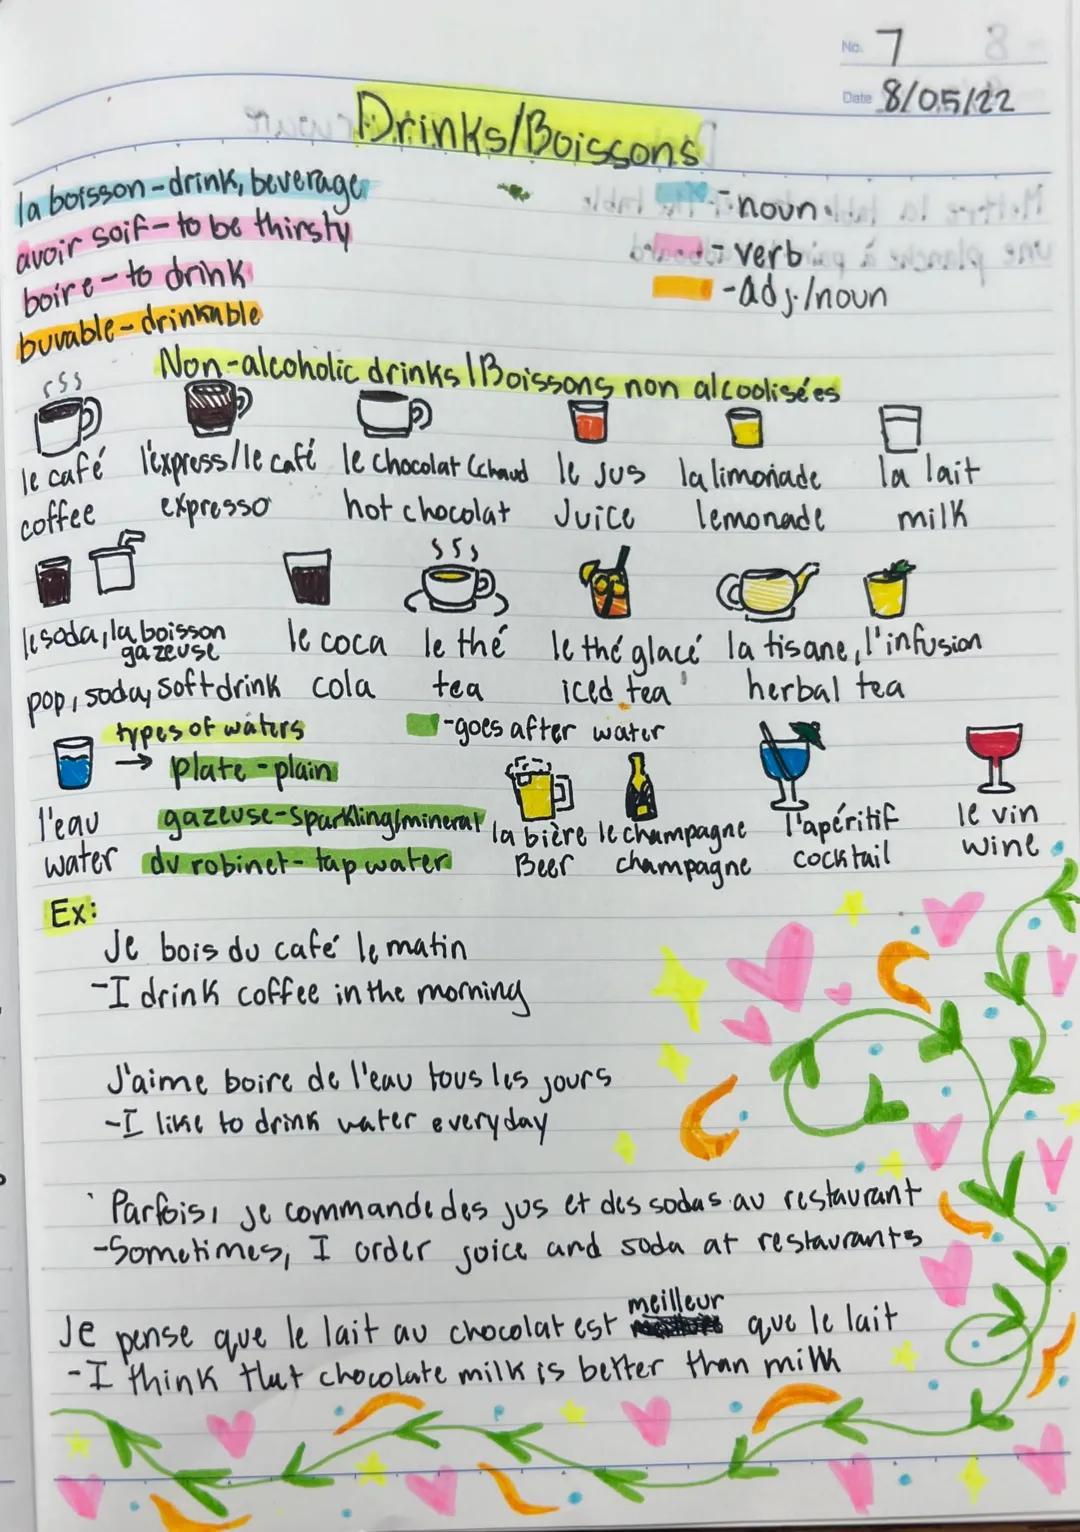 No. 7
Date 8/05/22
Drinks/Boissons
la boisson - drink, beverage
- noun
avoir soif - to be thirsty
- verb
boire - to drink
- adj./noun
buvable - drinkable
Non-alcoholic drinks / Boissons non alcoolisées
le café l'express/le café le chocolat (chaud le jus la limonade la lait
coffee expresso hot chocolat Juice lemonade milk
le soda, la boisson gazeuse le coca le thé le thé glacé la tisane, l'infusion
pop, soda, soft drink cola tea iced tea herbal tea
types of waters - goes after water
→ plate - plain
l'eau gazeuse - sparkling/mineral la bière le champagne l'apéritif le vin
water du robinet - tap water Beer champagne cocktail wine
Ex:
Je bois du café le matin
- I drink coffee in the morning
J'aime boire de l'eau tous les jours
- I like to drink water everyday
Parfois, je commande des jus et des sodas au restaurant
- Sometimes, I order juice and soda at restaurants
Je pense que le lait au chocolat est meilleur que le lait
- I think that chocolate milk is better than milk